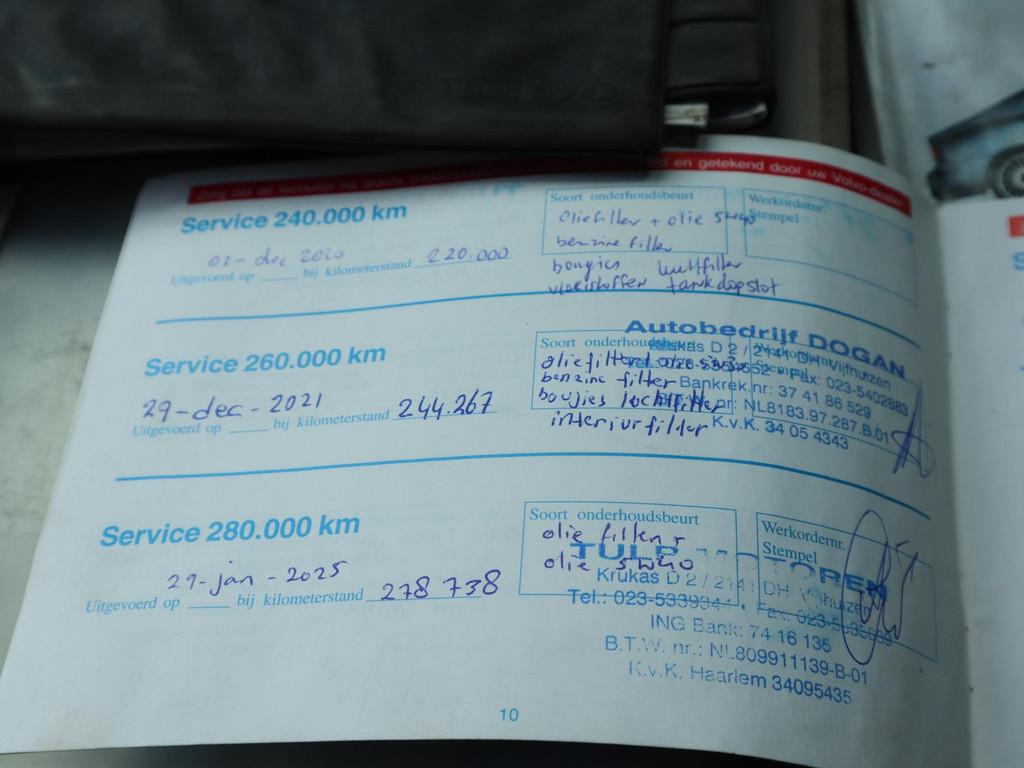 VOLVO
Zorg dat dit formulier na iedere en getekend door uw Volvo-dealer.
Service 240.000 km
02-dec 2020
Uitgevoerd op ____ bij kilometerstand 220.000
Soort onderhoudsbeurt
Oliefilter + olie 5w40
benzine filter
bougies luchtfilter
vloeistoffen tankdopslot
Werkordernr.
Stempel
Service 260.000 km
29-dec-2021
Uitgevoerd op ____ bij kilometerstand 244.267
Soort onderhoudsbeurt
oliefilter
benzine filter
boujies luchtfilter
interiurfilder
Werkordernr.
Stempel
Autobedrijf DOGAN
Krukas D 2 / 2141 DH Vijfhuizen
Fax: 023-5402883
Bankrek.nr: 37 41 86 529
nr: NL8183.97.287.B.01
K.v.K. 34 05 4343
Service 280.000 km
29-jan-2025
Uitgevoerd op ____ bij kilometerstand 278 738
Soort onderhoudsbeurt
olie filter +
olie 5w40
Werkordernr.
Stempel
TULP MOTOREN
Krukas D 2 / 2141 DH Vijfhuizen
Tel.: 023-533934 Fax: 023-
ING Bank: 74 16 135
B.T.W. nr.: NL809911139-B-01
K.v.K. Haarlem 34095435
10